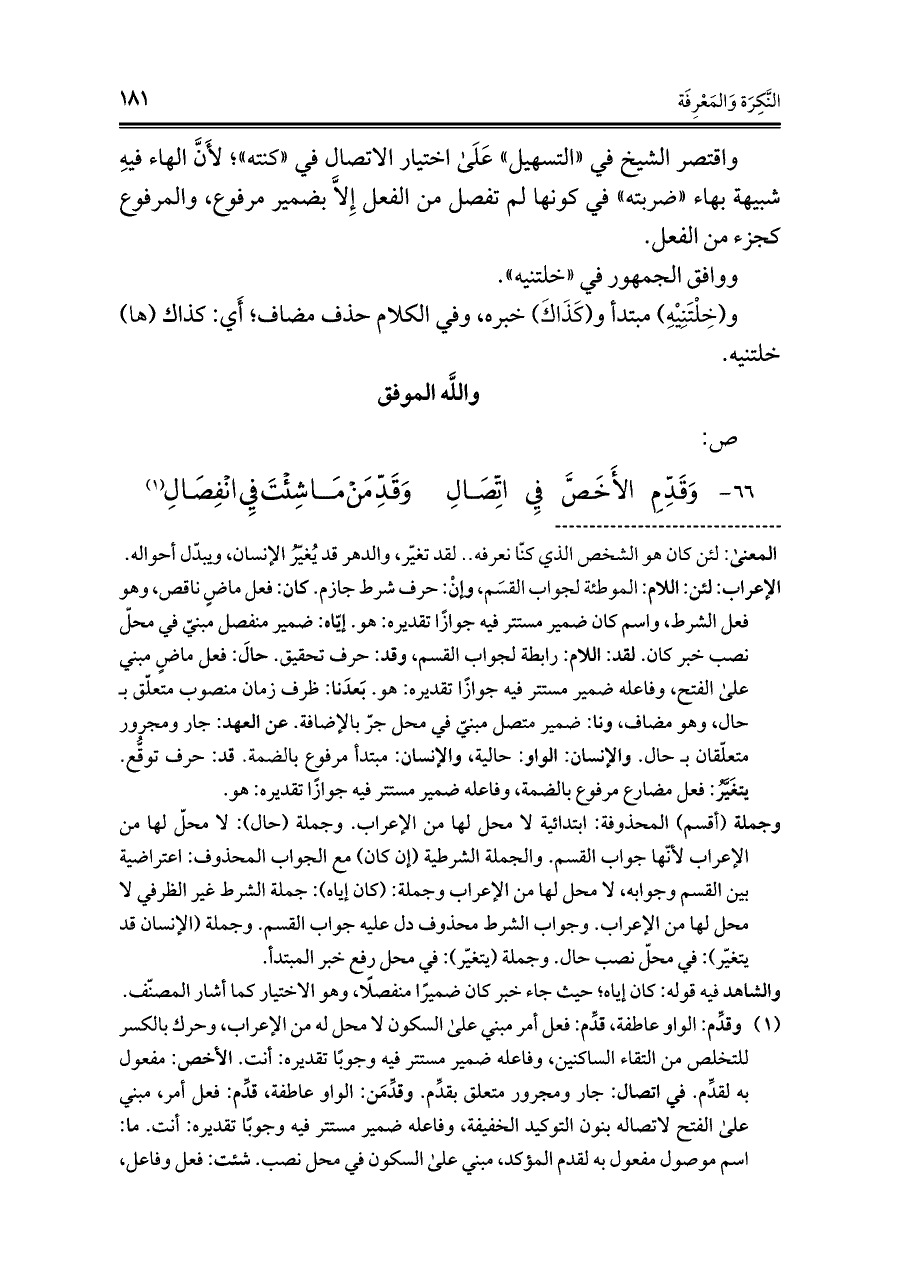 النَّكِرَة وَالمَعْرِفَة ١٨١
واقتصر الشيخ في «التسهيل» عَلَىٰ اختيار الاتصال في «كنته»؛ لأَنَّ الهاء فيهِ
شبيهة بهاء «ضربته» في كونها لم تفصل من الفعل إِلاَّ بضمير مرفوع، والمرفوع
كجزء من الفعل.
ووافق الجمهور في «خلتنيه».
و(خِلْتَنِيْهِ) مبتدأ و(كَذَاكَ) خبره، وفي الكلام حذف مضاف؛ أَي: كذاك (ها)
خلتنيه.
واللَّه الموفق
ص:
٦٦- وَقَدِّمِ الأَخَصَّ فِي اتِّصَالِ وَقَدِّمَنْ مَا شِئْتَ فِي انْفِصَالِ(١)
المعنىٰ: لئن كان هو الشخص الذي كنّا نعرفه.. لقد تغيّر، والدهر قد يُغيّرُ الإنسان، ويبدّل أحواله.
الإعراب: لئن: اللام: الموطئة لجواب القسَم، وإنْ: حرف شرط جازم. كان: فعل ماضٍ ناقص، وهو
فعل الشرط، واسم كان ضمير مستتر فيه جوازًا تقديره: هو. إيّاه: ضمير منفصل مبنيّ في محلّ
نصب خبر كان. لقد: اللام: رابطة لجواب القسم، وقد: حرف تحقيق. حالَ: فعل ماضٍ مبني
علىٰ الفتح، وفاعله ضمير مستتر فيه جوازًا تقديره: هو. بَعدَنا: ظرف زمان منصوب متعلّق بـ
حال، وهو مضاف، ونا: ضمير متصل مبنيّ في محل جرّ بالإضافة. عن العهد: جار ومجرور
متعلّقان بـ حال. والإنسان: الواو: حالية، والإنسان: مبتدأ مرفوع بالضمة. قد: حرف توقُّع.
يتغيَّرُ: فعل مضارع مرفوع بالضمة، وفاعله ضمير مستتر فيه جوازًا تقديره: هو.
وجملة (أقسم) المحذوفة: ابتدائية لا محل لها من الإعراب. وجملة (حال): لا محلّ لها من
الإعراب لأنّها جواب القسم. والجملة الشرطية (إن كان) مع الجواب المحذوف: اعتراضية
بين القسم وجوابه، لا محل لها من الإعراب وجملة: (كان إياه): جملة الشرط غير الظرفي لا
محل لها من الإعراب. وجواب الشرط محذوف دل عليه جواب القسم. وجملة (الإنسان قد
يتغيّر): في محلّ نصب حال. وجملة (يتغيّر): في محل رفع خبر المبتدأ.
والشاهد فيه قوله: كان إياه؛ حيث جاء خبر كان ضميرًا منفصلًا، وهو الاختيار كما أشار المصنّف.
(١) وقدِّم: الواو عاطفة، قدِّم: فعل أمر مبني علىٰ السكون لا محل له من الإعراب، وحرك بالكسر
للتخلص من التقاء الساكنين، وفاعله ضمير مستتر فيه وجوبًا تقديره: أنت. الأخص: مفعول
به لقدِّم. في اتصال: جار ومجرور متعلق بقدِّم. وقدِّمَن: الواو عاطفة، قدِّم: فعل أمر، مبني
علىٰ الفتح لاتصاله بنون التوكيد الخفيفة، وفاعله ضمير مستتر فيه وجوبًا تقديره: أنت. ما:
اسم موصول مفعول به لقدم المؤكد، مبني علىٰ السكون في محل نصب. شئت: فعل وفاعل،